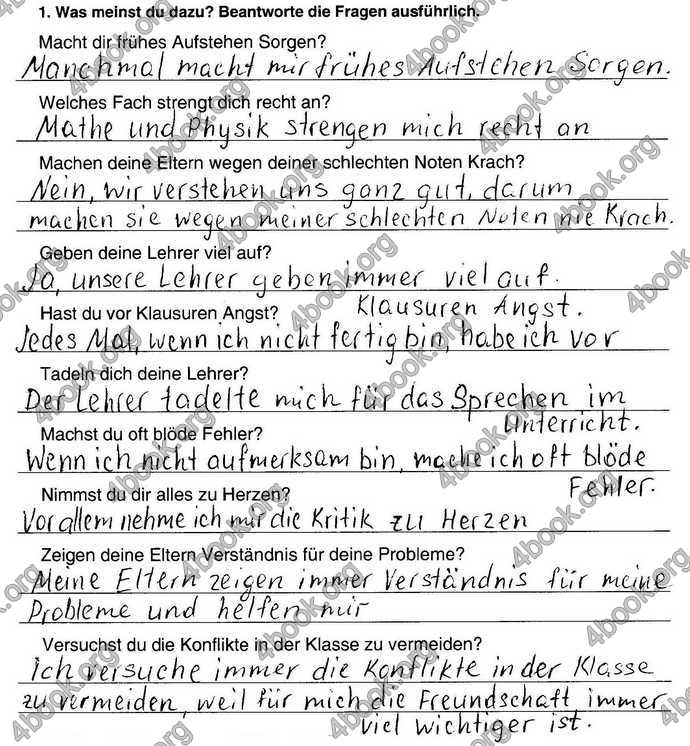 1. Was meinst du dazu? Beantworte die Fragen ausführlich.
Macht dir frühes Aufstehen Sorgen?
Manchmal macht mir frühes Aufstehen Sorgen.
Welches Fach strengt dich recht an?
Mathe und Physik strengen mich recht an
Machen deine Eltern wegen deiner schlechten Noten Krach?
Nein, wir verstehen uns ganz gut, darum
machen sie wegen meiner schlechten Noten nie Krach.
Geben deine Lehrer viel auf?
Ja, unsere Lehrer geben immer viel auf.
Hast du vor Klausuren Angst?
Klausuren Angst.
Jedes Mal, wenn ich nicht fertig bin, habe ich vor
Tadeln dich deine Lehrer?
Der Lehrer tadelte mich für das Sprechen im
Unterricht.
Machst du oft blöde Fehler?
Wenn ich nicht aufmerksam bin, mache ich oft blöde
Fehler.
Nimmst du dir alles zu Herzen?
Vor allem nehme ich mir die Kritik zu Herzen
Zeigen deine Eltern Verständnis für deine Probleme?
Meine Eltern zeigen immer Verständnis für meine
Probleme und helfen mir
Versuchst du die Konflikte in der Klasse zu vermeiden?
Ich versuche immer die Konflikte in der Klasse
zu vermeiden, weil für mich die Freundschaft immer
viel wichtiger ist.
4book.org